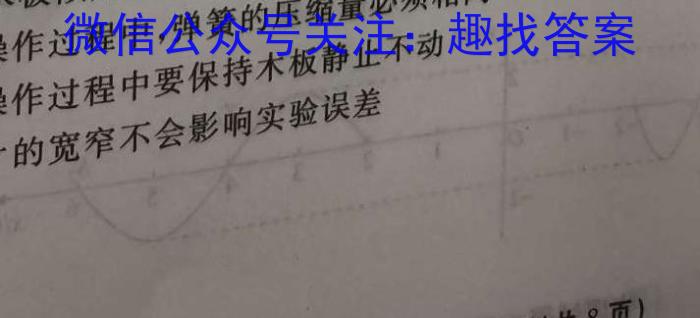 操作过程中,弹簧的压缩量必须相同
微信公众号关注：趣找答案
操作过程中要保持木板静止不动
的宽窄不会影响实验误差
共8页)